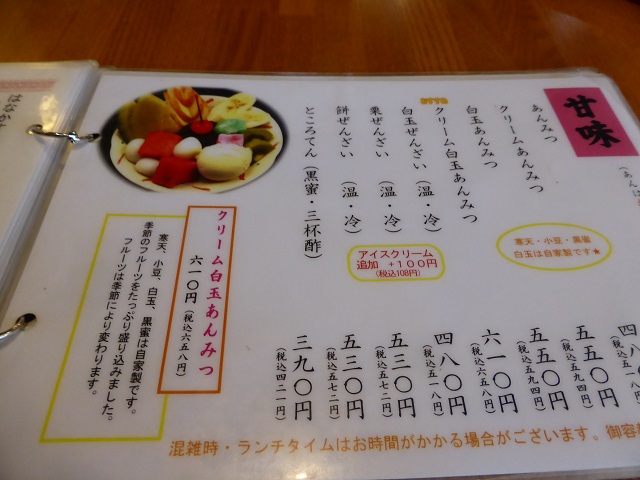 甘味
あんみつ
クリームあんみつ
白玉あんみつ
クリーム白玉あんみつ
白玉ぜんざい（温・冷）
栗ぜんざい（温・冷）
餅ぜんざい（温・冷）
ところてん（黒蜜・三杯酢）
寒天・小豆・黒蜜
白玉は自家製です★
アイスクリーム
追加 +100円
(税込108円)
四八〇円
五五〇円
（税込五九四円）
五五〇円
（税込五九四円）
六一〇円
（税込六五八円）
四八〇円
（税込五一八円）
五三〇円
（税込五七二円）
五三〇円
（税込五七二円）
三九〇円
（税込四二一円）
クリーム白玉あんみつ
六一〇円（税込六五八円）
寒天、小豆、白玉、黒蜜は自家製です。
季節のフルーツをたっぷり盛り込みました。
フルーツは季節により変わります。
混雑時・ランチタイムはお時間がかかる場合がございます。御容